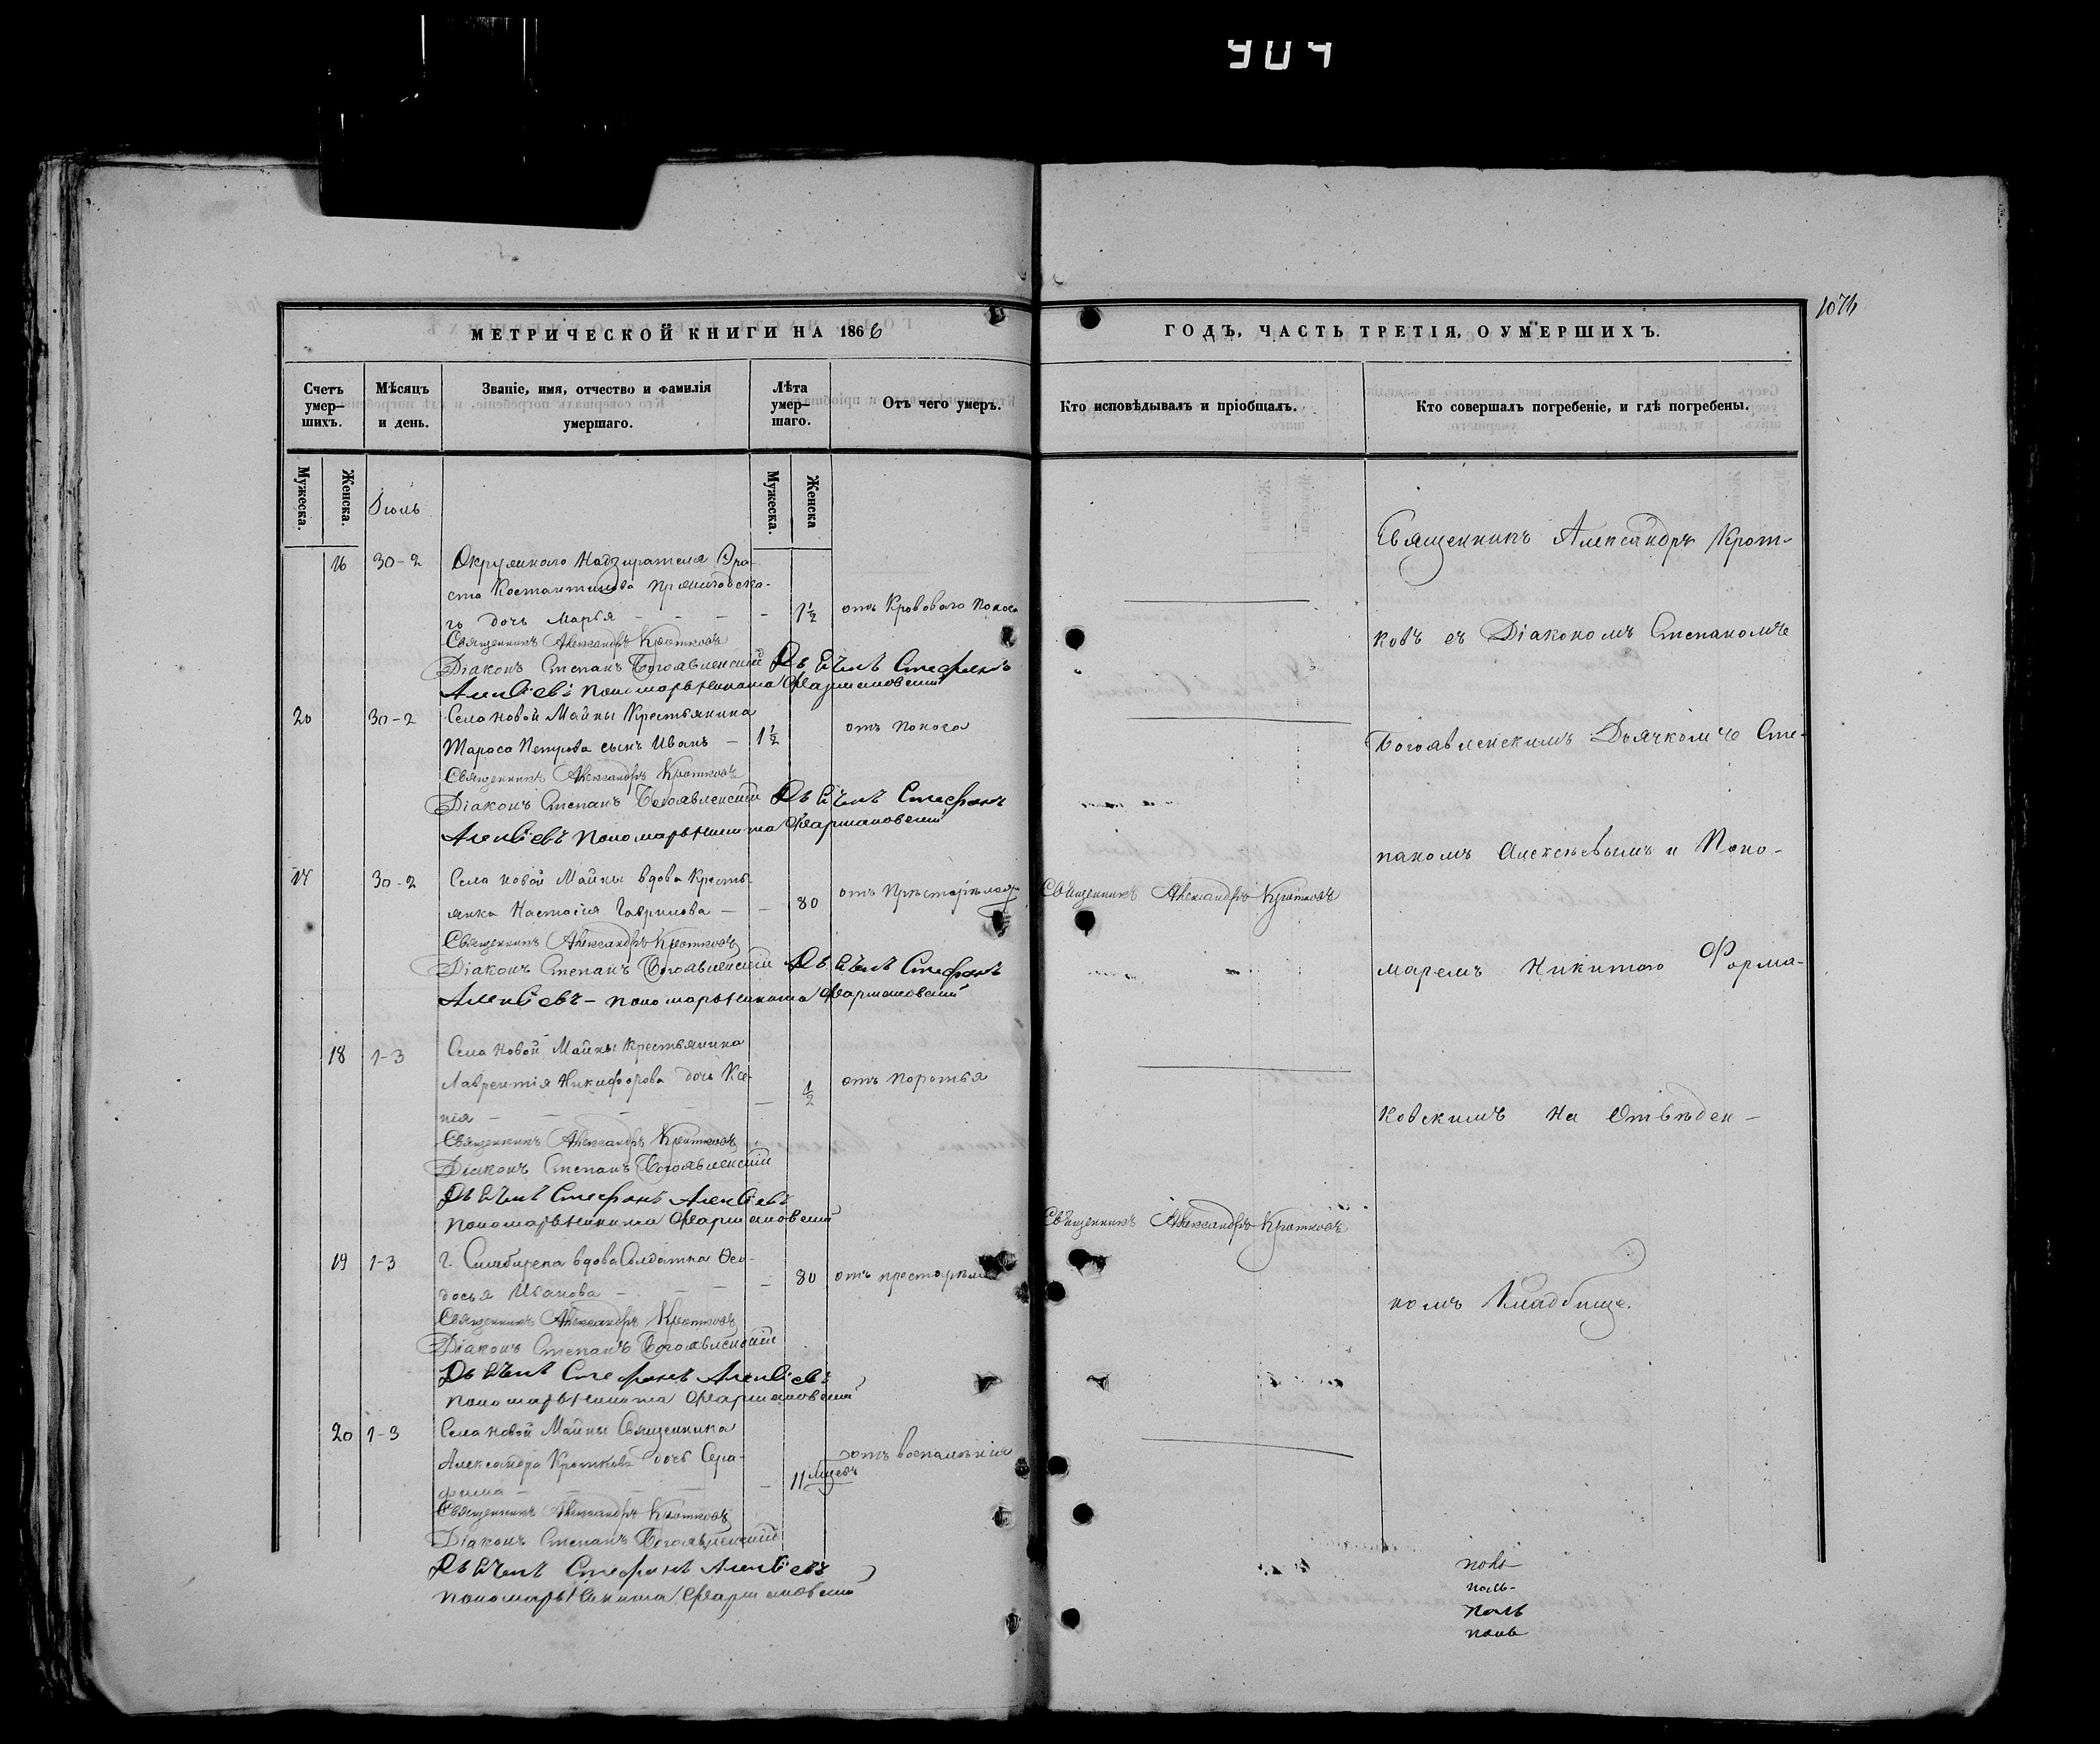 904
1074
МЕТРИЧЕСКОЙ КНИГИ НА 1866
ГОДЪ, ЧАСТЬ ТРЕТІЯ, О УМЕРШИХЪ.
Счетъ умер-
шихъ.
Мѣсяцъ
и день.
Званіе, имя, отчество и фамилія
умершаго.
Лѣта
умер-
шаго.
Отъ чего умеръ.
Кто исповѣдывалъ и пріобщалъ.
Кто совершалъ погребеніе, и гдѣ погребены.
Мужеска.
Женска.
Мужеска.
Женска
16 30-2 Окружнаго Надзирателя Эра-
ста Костантинова
го дочь Марья - 1½ отъ Кроваваго поноса
Священникъ Александръ Кротковъ
Діаконъ Степанъ Богоявленскій Дьячекъ Стефанъ
Алексѣевъ пономарь Никита Фармаковскій
20 30-2 Села Новой Майны Крестьянина
Тараса Петрова сынъ Иванъ - 1½ отъ поноса
Священникъ Александръ Кротковъ
Діаконъ Степанъ Богоявленскій Дьячекъ Стефанъ
Алексѣевъ пономарь Никита Фармаковскій
17 30-2 Села Новой Майны вдова Кресть-
янка Настасія Гаврилова - 80 отъ престарѣлости
Священникъ Александръ Кротковъ
Священникъ Александръ Кротковъ
Діаконъ Степанъ Богоявленскій Дьячекъ Стефанъ
Алексѣевъ - пономарь Никита Фармаковскій
18 1-3 Села Новой Майны Крестьянина
Лаврентія Никифорова дочь Ксе-
нія - ½
Священникъ Александръ Кротковъ
Діаконъ Степанъ Богоявленскій
Дьячекъ Стефанъ Алексѣевъ
пономарь Никита Фармаковскій
Священникъ Александръ Кротковъ
19 1-3 г. Симбирска вдова Солдатка Ѳео-
досья Иванова - 80 отъ престарѣлос
Священникъ Александръ Кротковъ
Діаконъ Степанъ Богоявленскій
Дьячекъ Стефанъ Алексѣевъ
пономарь Никита Фармаковскій
20 1-3 Села Новой Майны Священника
Александра Кроткова дочь Сера-
фима - 11 мѣсяц отъ воспаленія
Священникъ Александръ Кротковъ
Діаконъ Степанъ Богоявленскій
Дьячекъ Стефанъ Алексѣевъ
пономарь Никита Фармаковскій
Священникъ Александръ Крот-
ковъ съ Діакономъ Степаномъ
Богоявленскимъ Дьячкомъ Сте-
паномъ Алексѣевымъ и Поно-
маремъ Никитою Фарма-
ковскимъ на Отвѣден-
номъ Кладбище.